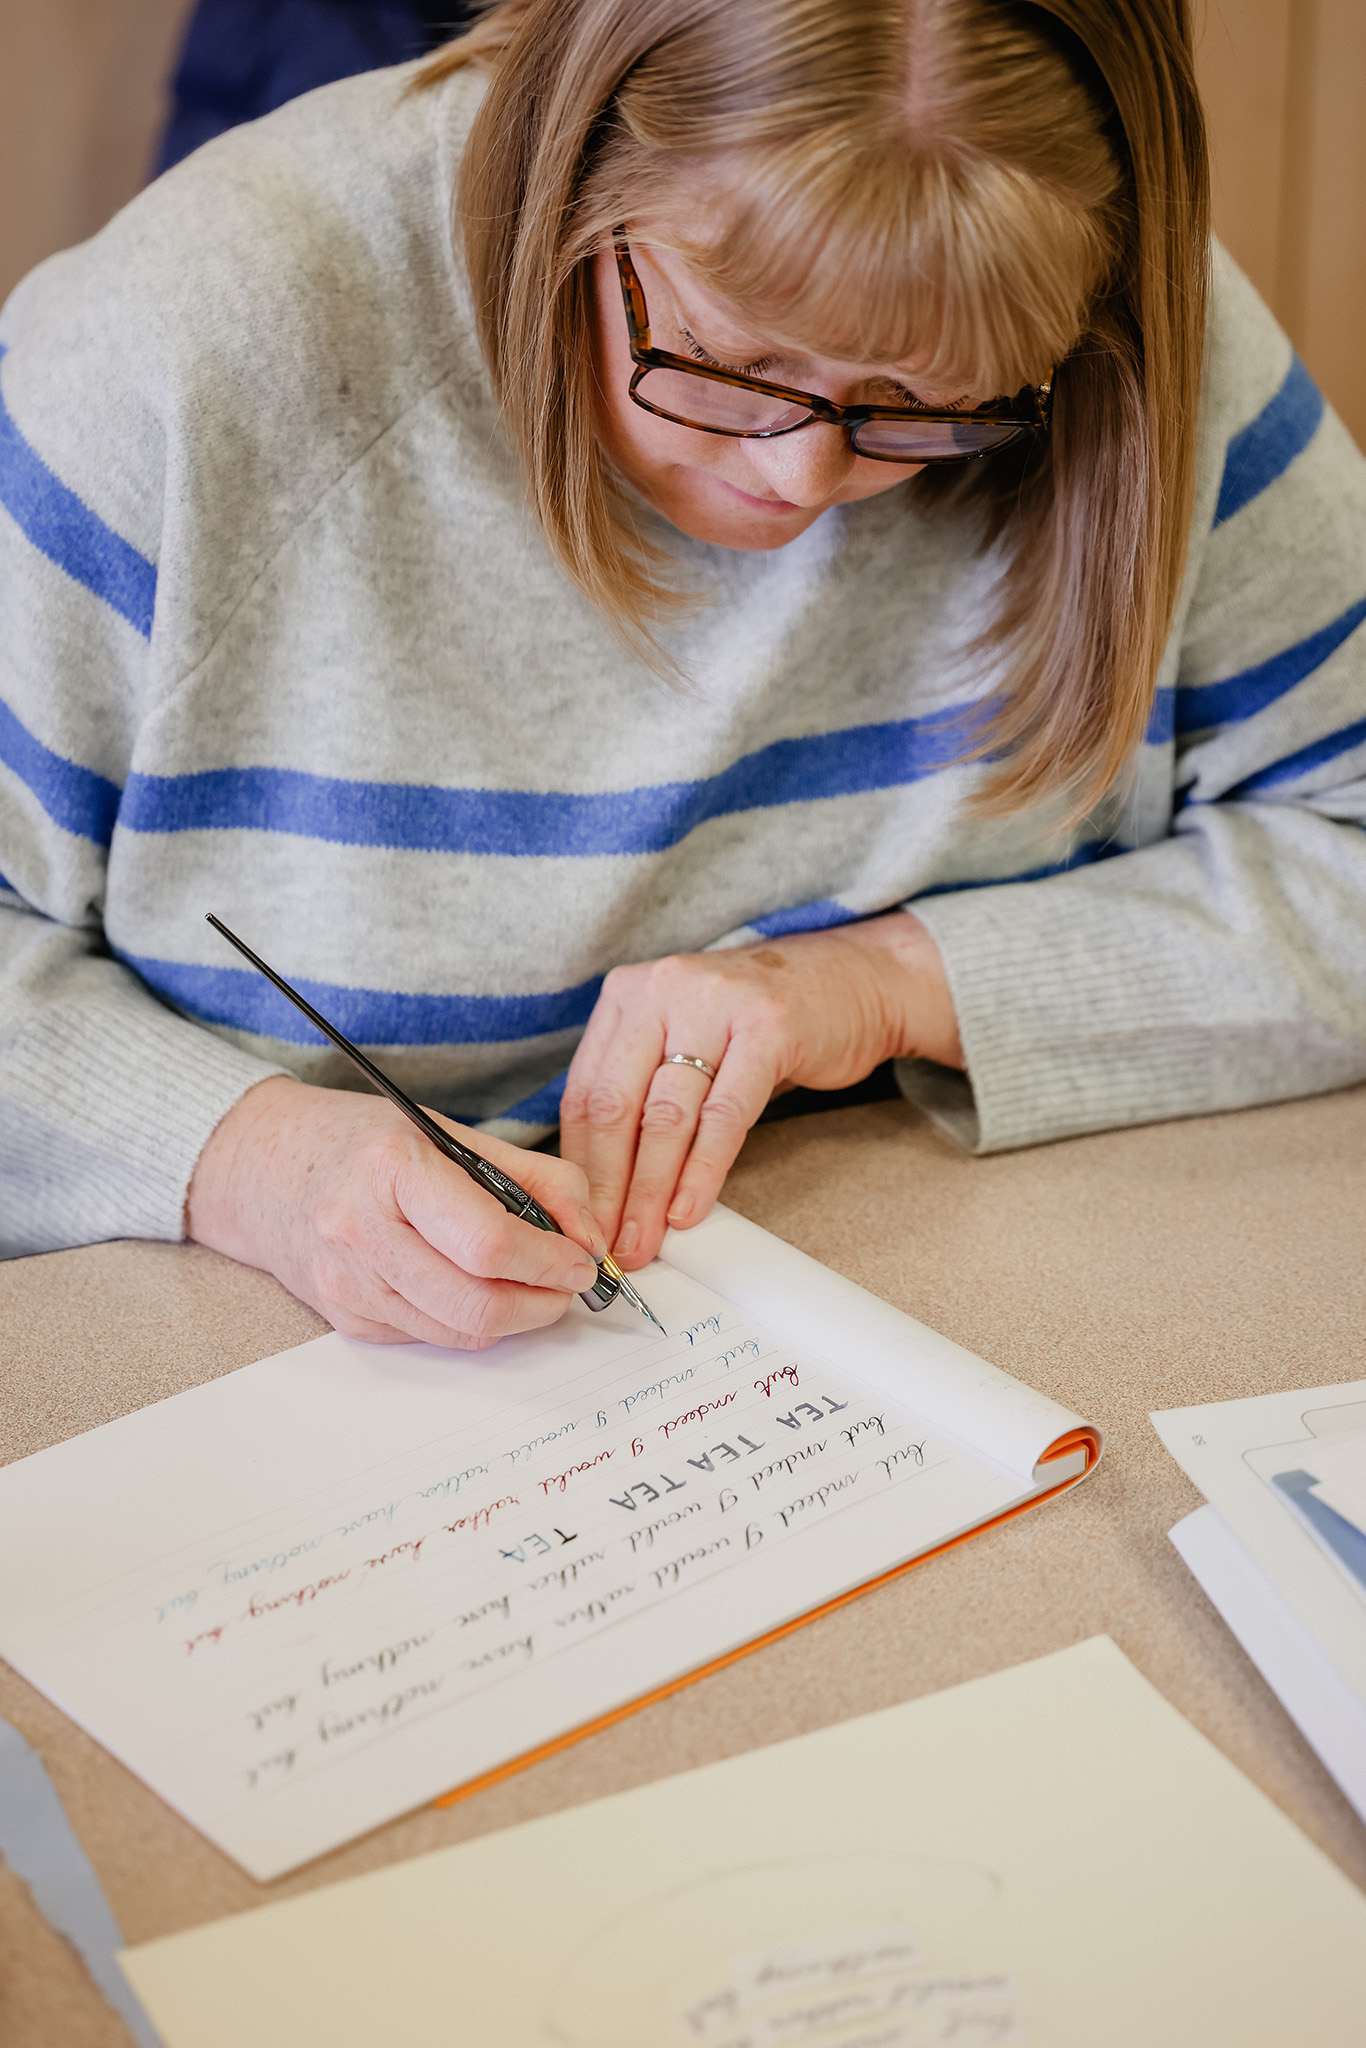 but indeed I would rather have nothing but
but indeed I would rather have nothing but
TEA TEA TEA TEA
but indeed I would rather have nothing but
but indeed I would rather have nothing but
but